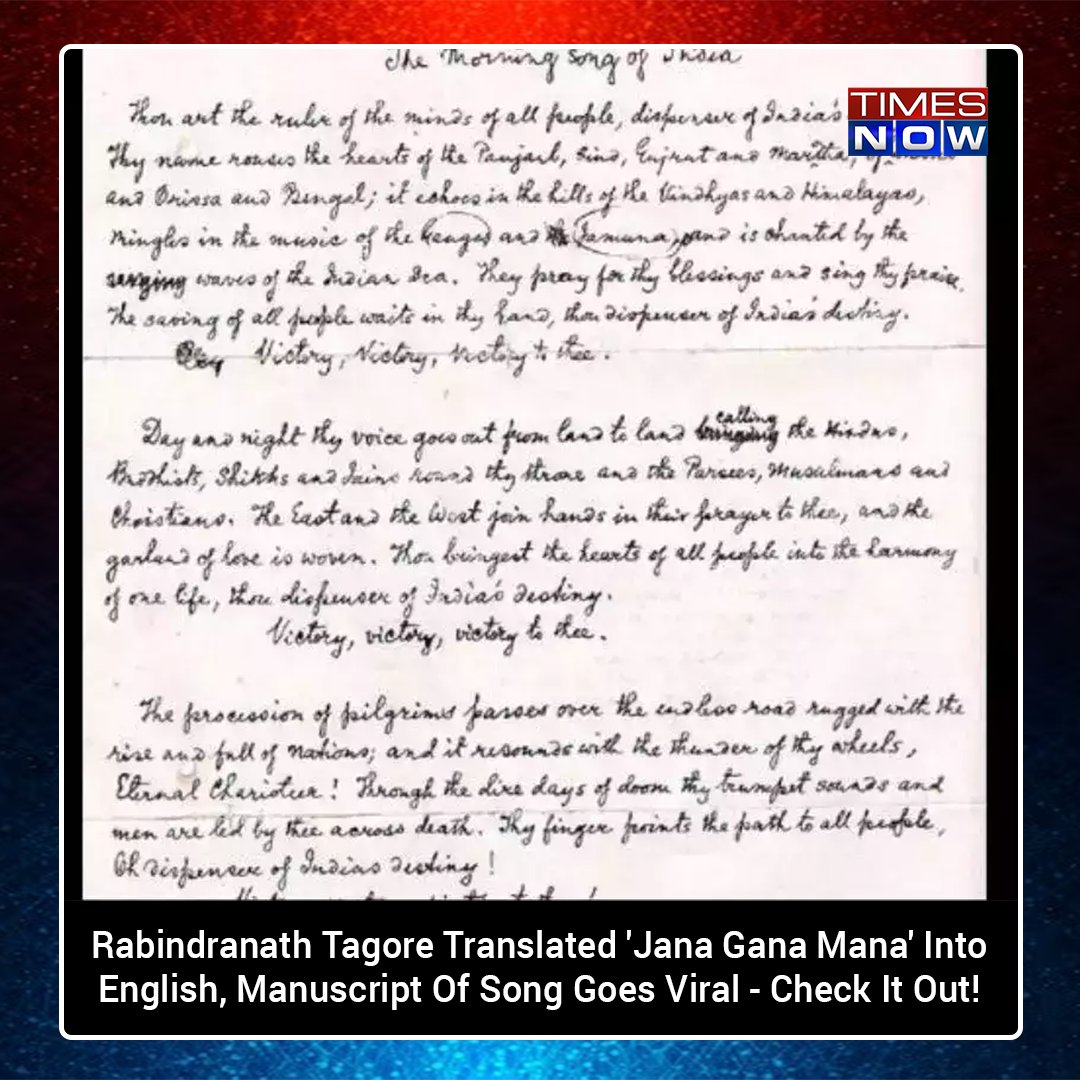 The Morning Song of India
TIMES
NOW
Thou art the ruler of the minds of all people, dispenser of India's
Thy name rouses the hearts of the Panjaub, Sind, Gujrat and Maratha, of
and Orissa and Bengal; it echoes in the hills of the Vindhyas and Himalayas,
mingles in the music of the Ganges and Jamuna, and is chanted by the
surging waves of the Indian Sea. They pray for thy blessings and sing thy praise.
The saving of all people waits in thy hand, thou dispenser of India's destiny.
Victory, Victory, Victory to thee.
Day and night thy voice goes out from land to land calling the Hindus,
Budhists, Shikhs and Jains round thy throne and the Parsees, Musulmans and
Christians. The East and the West join hands in their prayer to thee, and the
garland of love is woven. Thou bringest the hearts of all people into the harmony
of one life, thou dispenser of India's destiny.
Victory, victory, victory to thee.
The procession of pilgrims passes over the endless road rugged with the
rise and fall of nations; and it resounds with the thunder of thy wheels,
Eternal Charioteer! Through the dire days of doom thy trumpet sounds and
men are led by thee across death. Thy finger points the path to all people,
Oh dispenser of Indias destiny!
Rabindranath Tagore Translated 'Jana Gana Mana' Into
English, Manuscript Of Song Goes Viral - Check It Out!